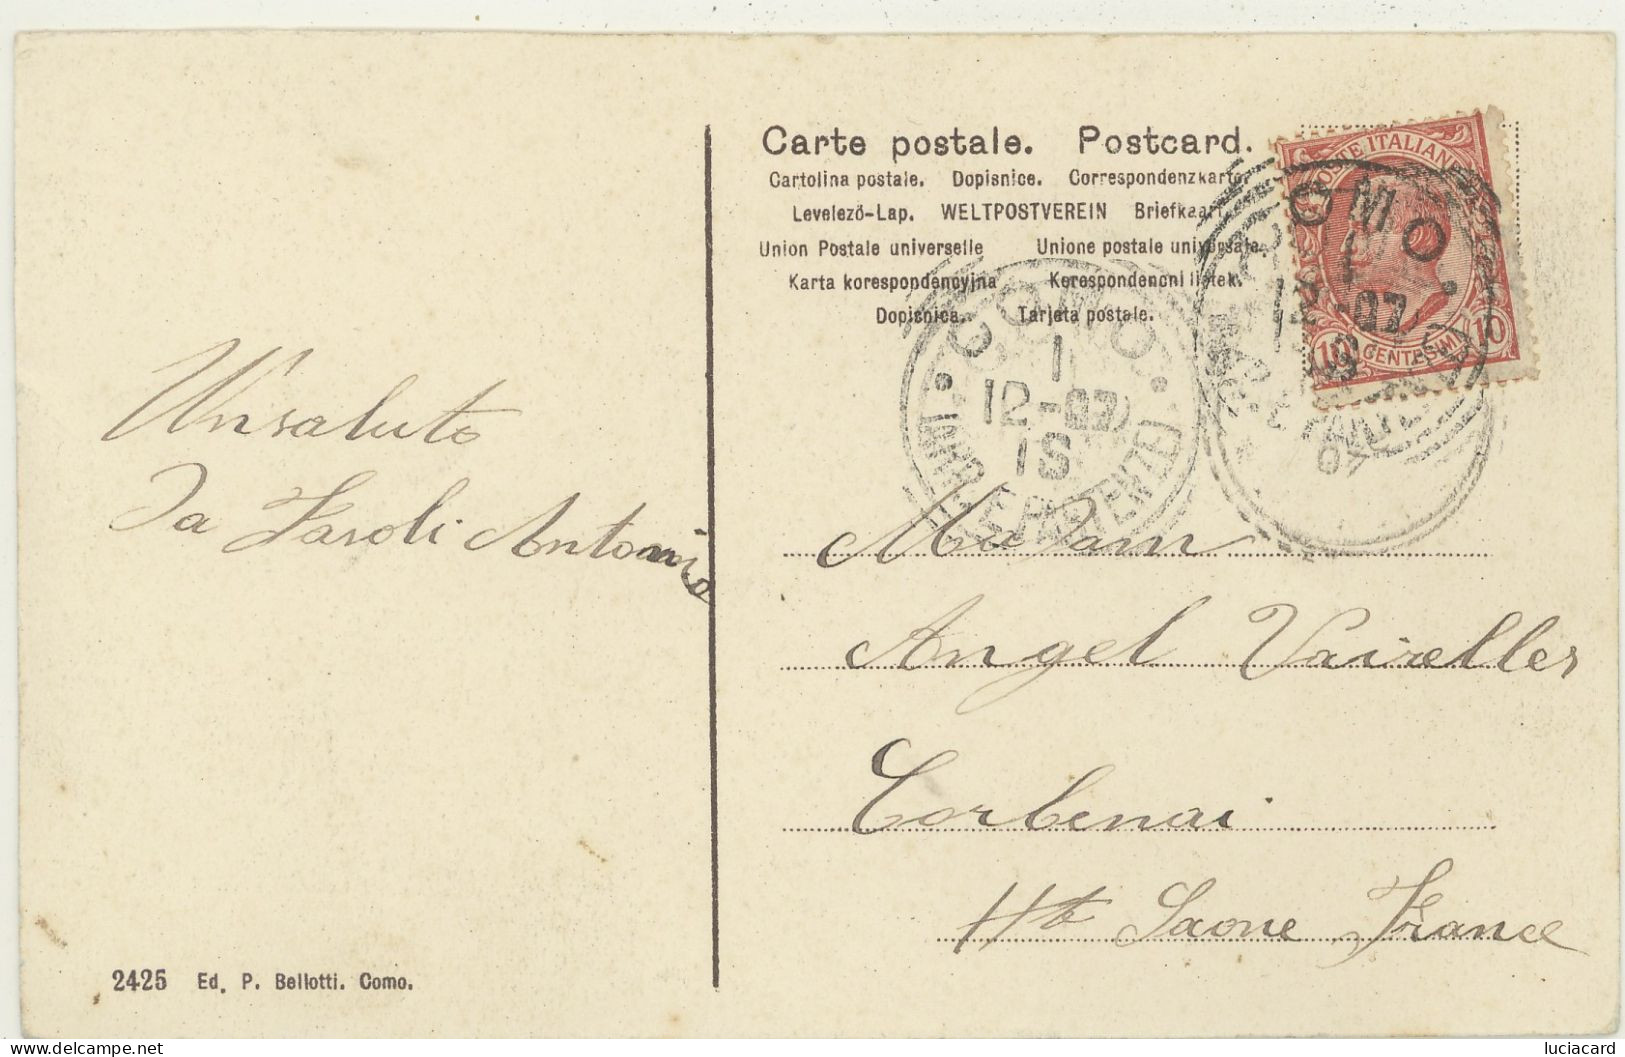 Carte postale. Postcard.
Cartolina postale. Dopisnice. Correspondenzkarte.
Levelező-Lap. WELTPOSTVEREIN Briefkaart
Union Postale universelle Unione postale universale
Karta korespondencyjna Korespondencni listek.
Dopisnica. Tarjeta postale.
POSTE ITALIANE
10 CENTESIMI 10
COMO
12-07
COMO
1
12-07
18
ARRIVI E PARTENZE
Un saluto
Da Fasoli Antonio
Madam
Angel Vairelles
Corbenai
Hte Saone France
2425 Ed. P. Bellotti. Como.
luciacard